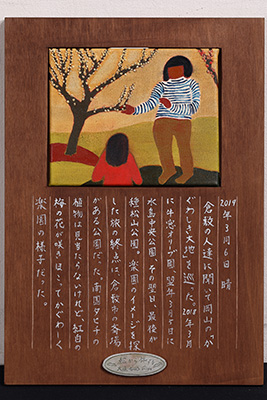 2019年3月6日 晴
倉敷の人達に聞いて岡山の「か
ぐわしき大地」を巡った。2018年3月
に牛窓オリーブ園、翌年3月5日に
水島中央公園、その翌日、最後が
種松山公園。楽園のイメージを探
した旅の終点は、倉敷市の斎場
がある公園だった。南国タヒチの
植物は見当たらないけれど、紅白の
梅の花が咲きほこってかぐわしく
楽園の様子だった。